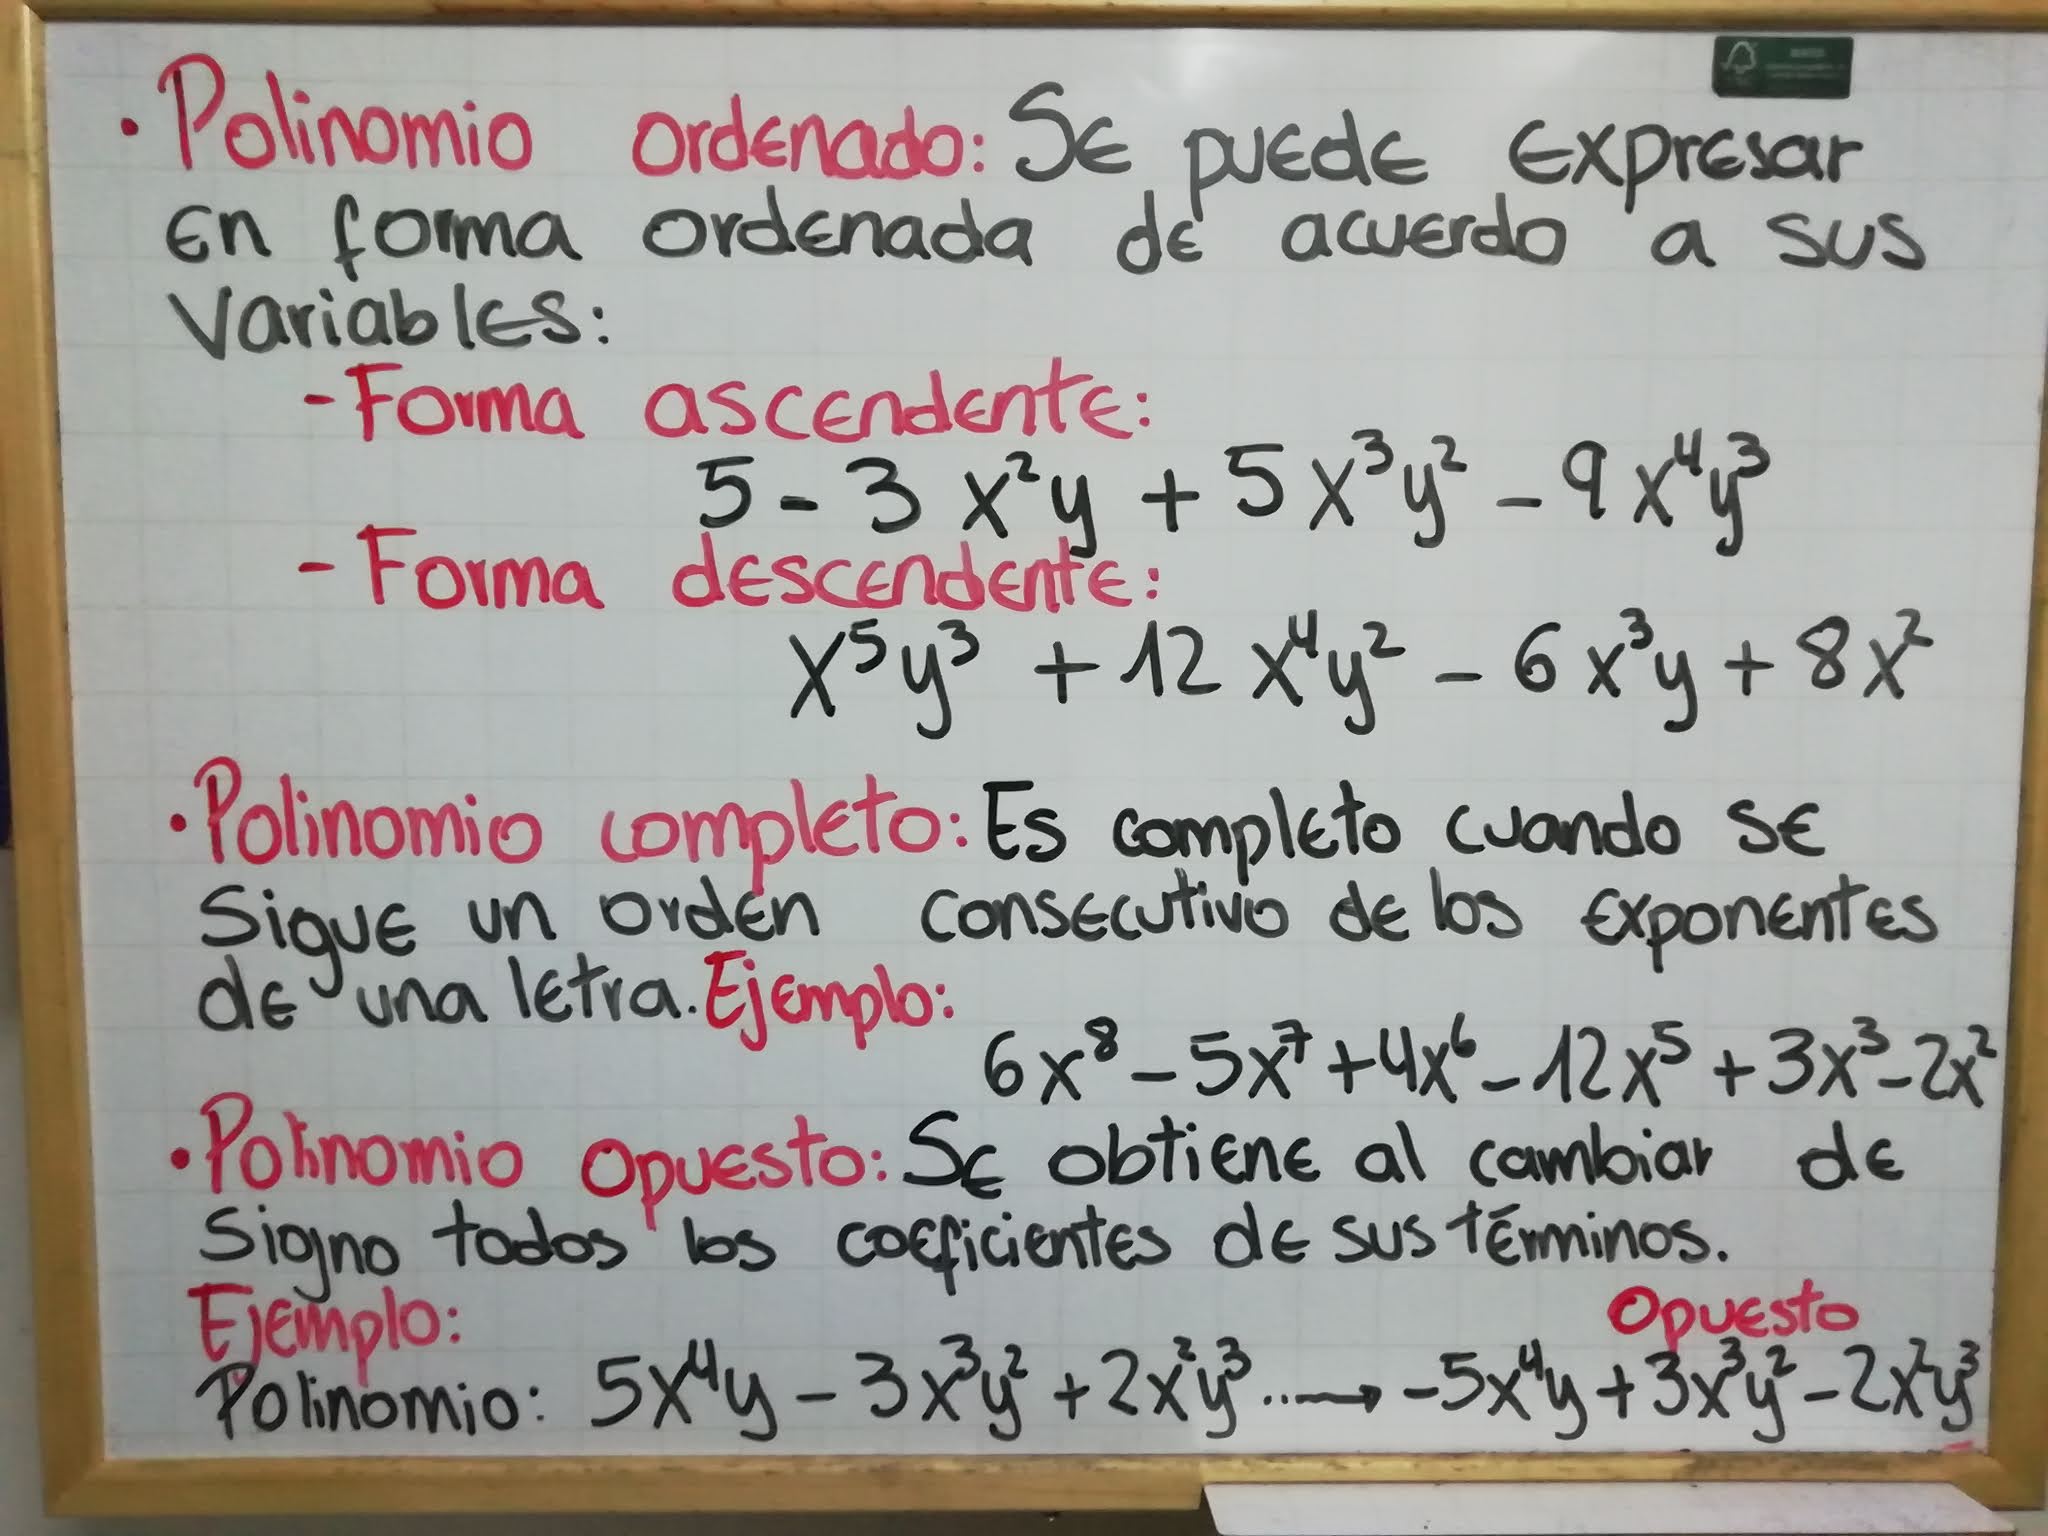 • Polinomio ordenado: Se puede expresar
en forma ordenada de acuerdo a sus
variables:
- Forma ascendente:
5 - 3x²y + 5x³y² - 9x⁴y³
- Forma descendente:
x⁵y³ + 12x⁴y² - 6x³y + 8x²
• Polinomio completo: Es completo cuando se
sigue un orden consecutivo de los exponentes
de una letra. Ejemplo:
6x⁸ - 5x⁷ + 4x⁶ - 12x⁵ + 3x³ - 2x²
• Polinomio opuesto: Se obtiene al cambiar de
signo todos los coeficientes de sus términos.
Ejemplo:
Opuesto
Polinomio: 5x⁴y - 3x³y² + 2x²y³ ....→ -5x⁴y + 3x³y² - 2x²y³